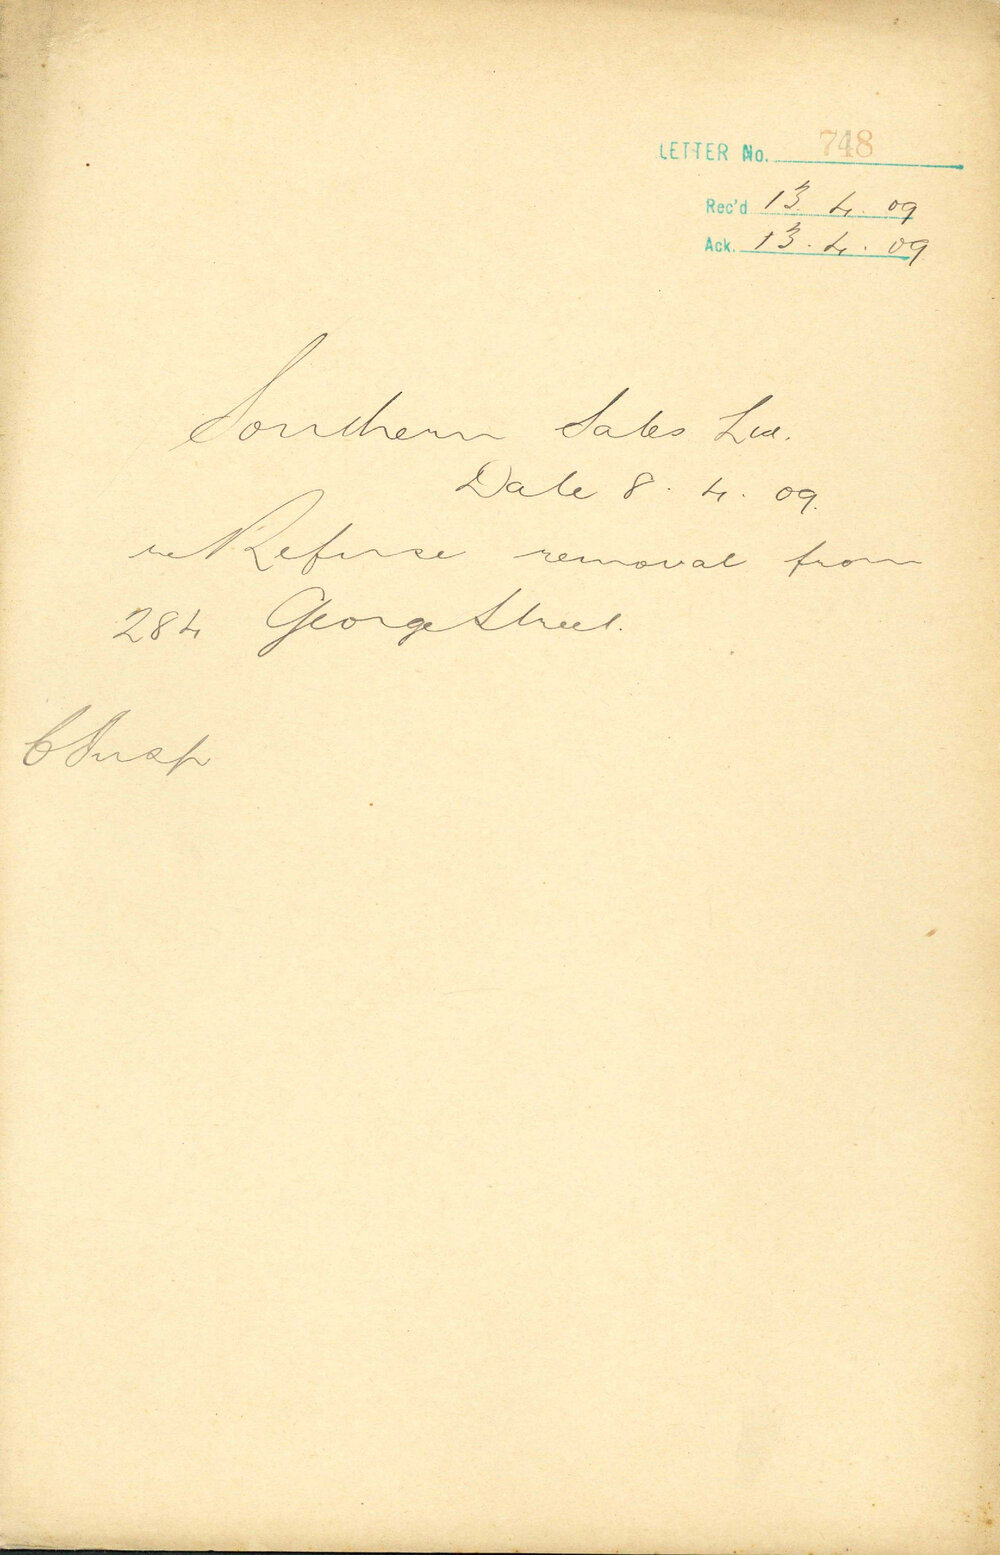 LETTER No. 748
Rec'd 13. 4. 09
Ack. 13. 4. 09
Southern Sales Ltd.
Date 8. 4. 09.
re Refuse removal from
284 George Street.
C Insp